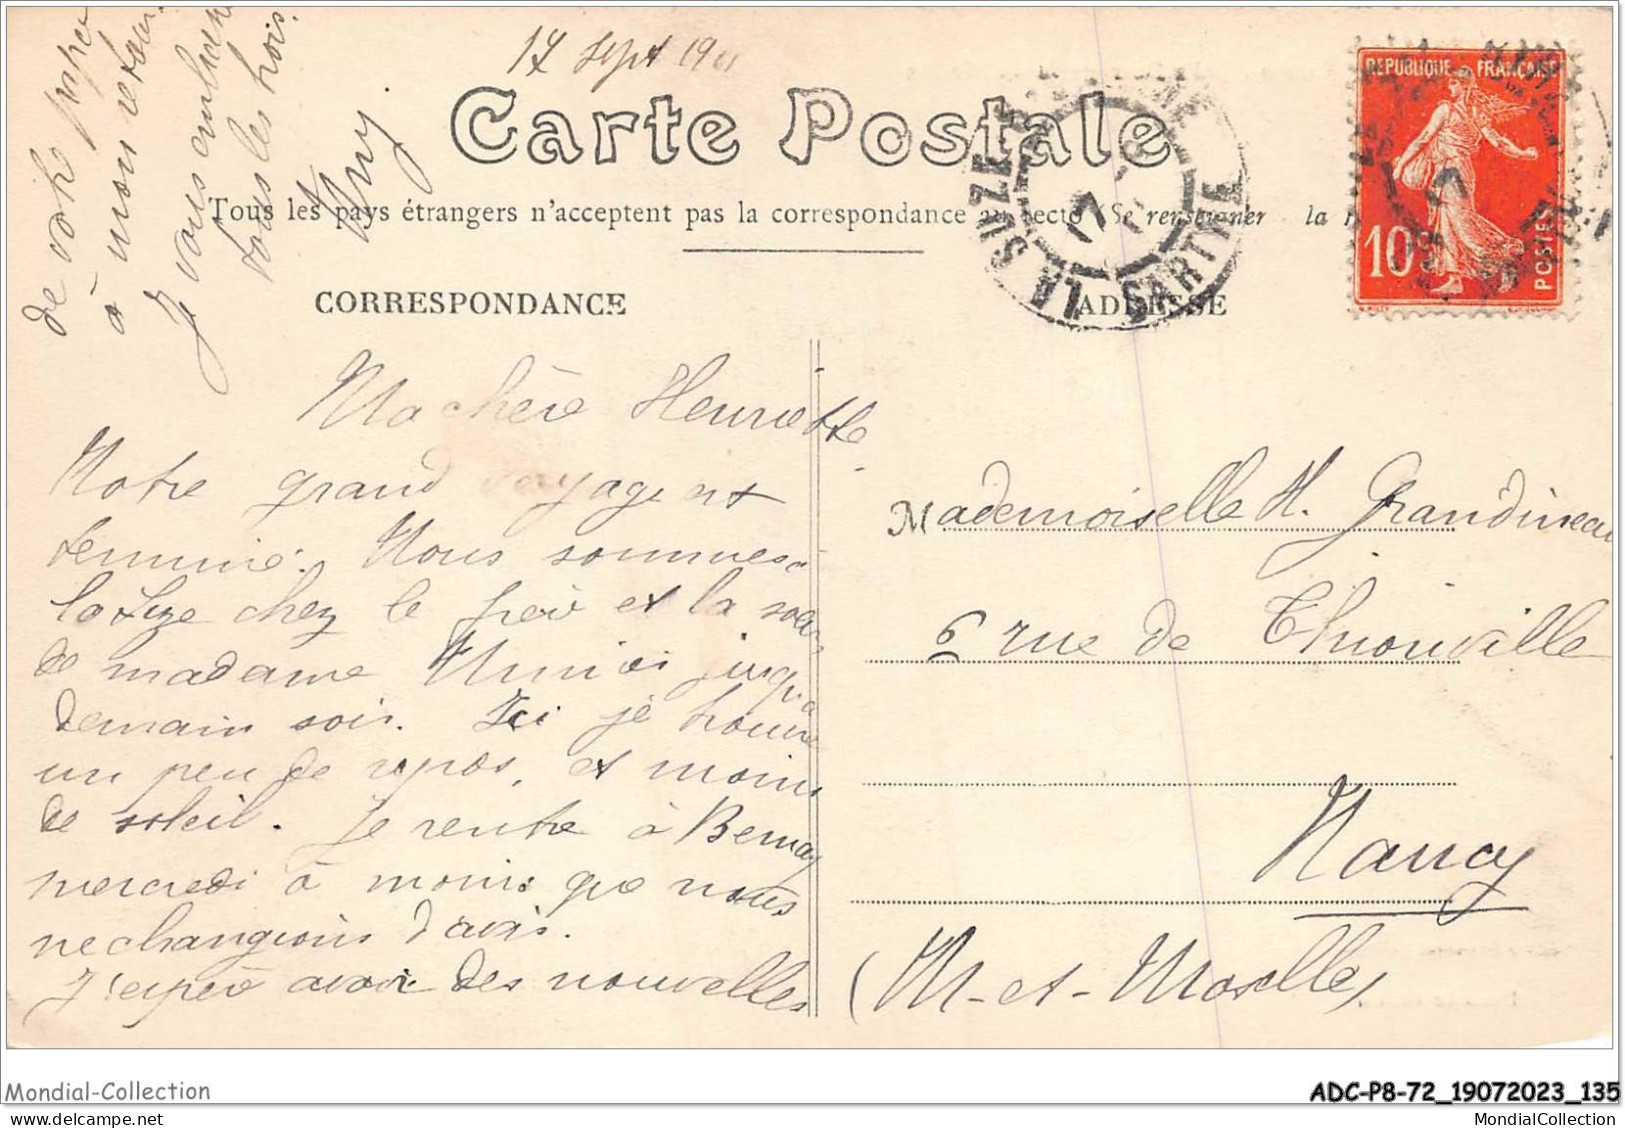 17 Sept 19
Carte Postale
Tous les pays étrangers n'acceptent pas la correspondance au recto (Se renseigner la
CORRESPONDANCE
ADRESSE
REPUBLIQUE FRANÇAISE
10c
POSTES
LA SUZE
SARTHE
17
Ma chère Henriette
Notre grand voyage est
terminé. Nous sommes à
la Suze chez le frère et la soeur
de madame jusqu'à
demain soir. Ici je trouve
un peu de repos, et moins
de soleil. Je rentre à Bernay
mercredi à moins que nous
ne changions d'avis.
J'espère avoir des nouvelles
de votre
à mon retour.
Je vous embrasse
tous les trois.
Mademoiselle H. Grandineau
6 rue de Thionville
Nancy
(M-et-Moselle)
Mondial-Collection
ADC-P8-72_19072023_135
MondialCollection